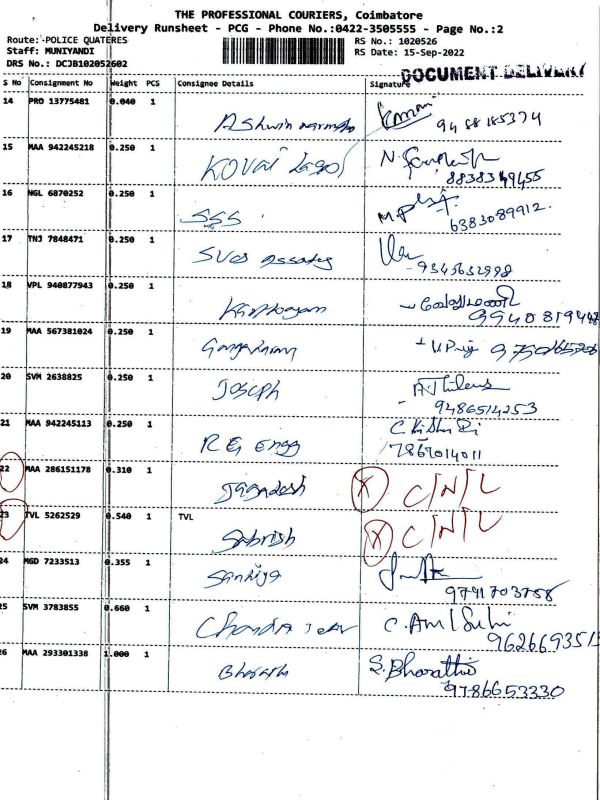 THE PROFESSIONAL COURIERS, Coimbatore
Delivery Runsheet - PCG - Phone No.:0422-3505555 - Page No.:2
Route:-POLICE QUATERES RS No.: 1020526
Staff: MUNIYANDI RS Date: 15-Sep-2022
DRS No.: DCJB102052602
DOCUMENT DELIVERY
S No Consignment No Weight PCS Consignee Details Signature
14 PRO 13775481 0.040 1
Ashwin
15 MAA 942245218 0.250 1
KOVAI
8838349455
16 NGL 6870252 0.250 1
SSS 6383089912
17 TNJ 7848471 0.250 1
9345632998
18 VPL 940877943 0.250 1
9940819448
19 MAA 567381024 0.250 1
20 SVM 2638825 0.250 1
Joseph
9486514253
21 MAA 942245113 0.250 1
RG Engg 7867014011
22 MAA 286151178 0.310 1
Jagadesh X C/N/L
23 TVL 5262529 0.540 1 TVL
Sabrish X C/N/L
24 MGD 7233513 0.355 1
Sanhiya
9791703758
25 SVM 3783855 0.660 1
Chandra
26 MAA 293301338 1.000 1
Bharath S. Bharathi
9786653330